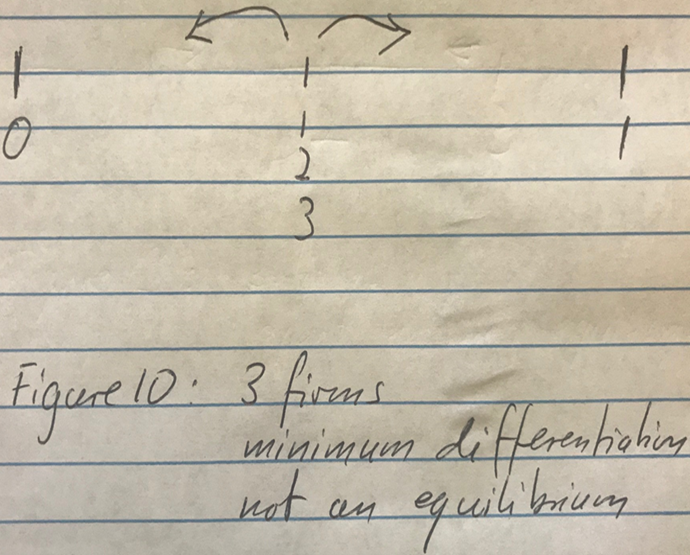 0 1 1
2
3
Figure 10: 3 firms
minimum differentiation
not an equilibrium